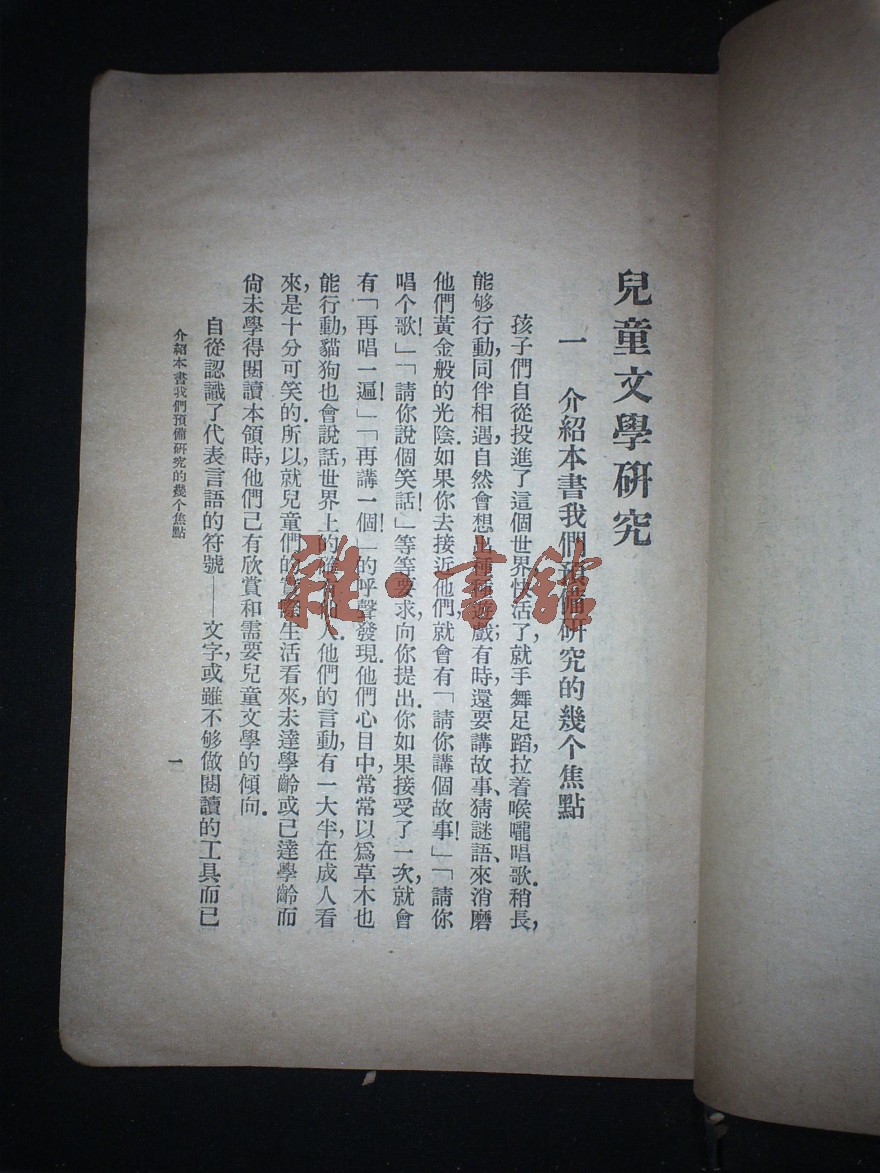 兒童文學研究
一　介紹本書我們預備研究的幾个焦點
孩子們自從投進了這個世界，快活了，就手舞足蹈，拉着喉嚨唱歌．稍長，
能够行動，同伴相遇，自然會想出種種遊戲；有時，還要講故事、猜謎語、來消磨
他們黃金般的光陰．如果你去接近他們，就會有「請你講個故事！」「請你
唱个歌！」「請你說個笑話！」等等要求向你提出．你如果接受了一次，就會
有「再唱一遍！」「再講一個！」的呼聲發現．他們心目中，常常以爲草木也
能行動，貓狗也會說話，世界上的 人．他們的言動，有一大半在成人看
來，是十分可笑的．所以，就兒童們的實際生活看來，未達學齡或已達學齡而
尙未學得閱讀本領時，他們已有欣賞和需要兒童文學的傾向．
自從認識了代表言語的符號——文字，或雖不够做閱讀的工具而已
介紹本書我們預備研究的幾个焦點
一
雜·書館